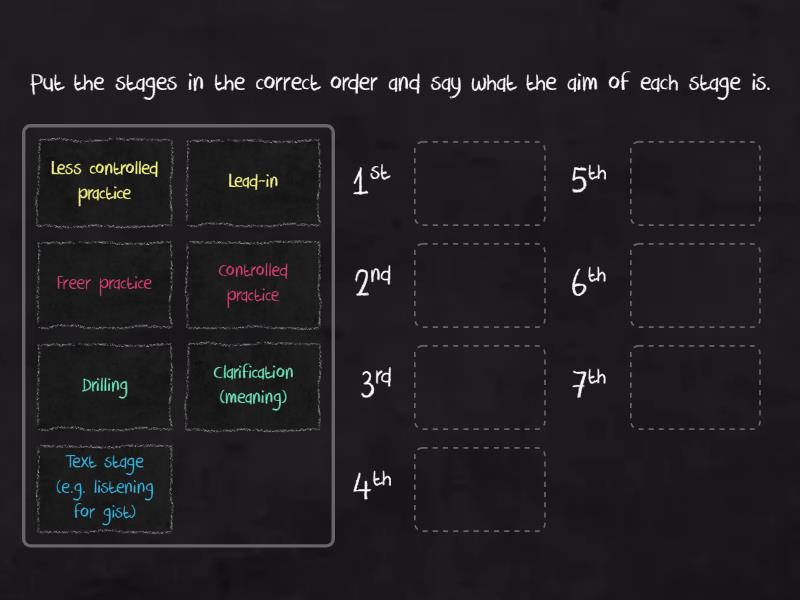 Put the stages in the correct order and say what the aim of each stage is.
Less controlled
practice
Lead-in
Freer practice
Controlled
practice
Drilling
Clarification
(meaning)
Text stage
(e.g. listening
for gist)
1st
2nd
3rd
4th
5th
6th
7th